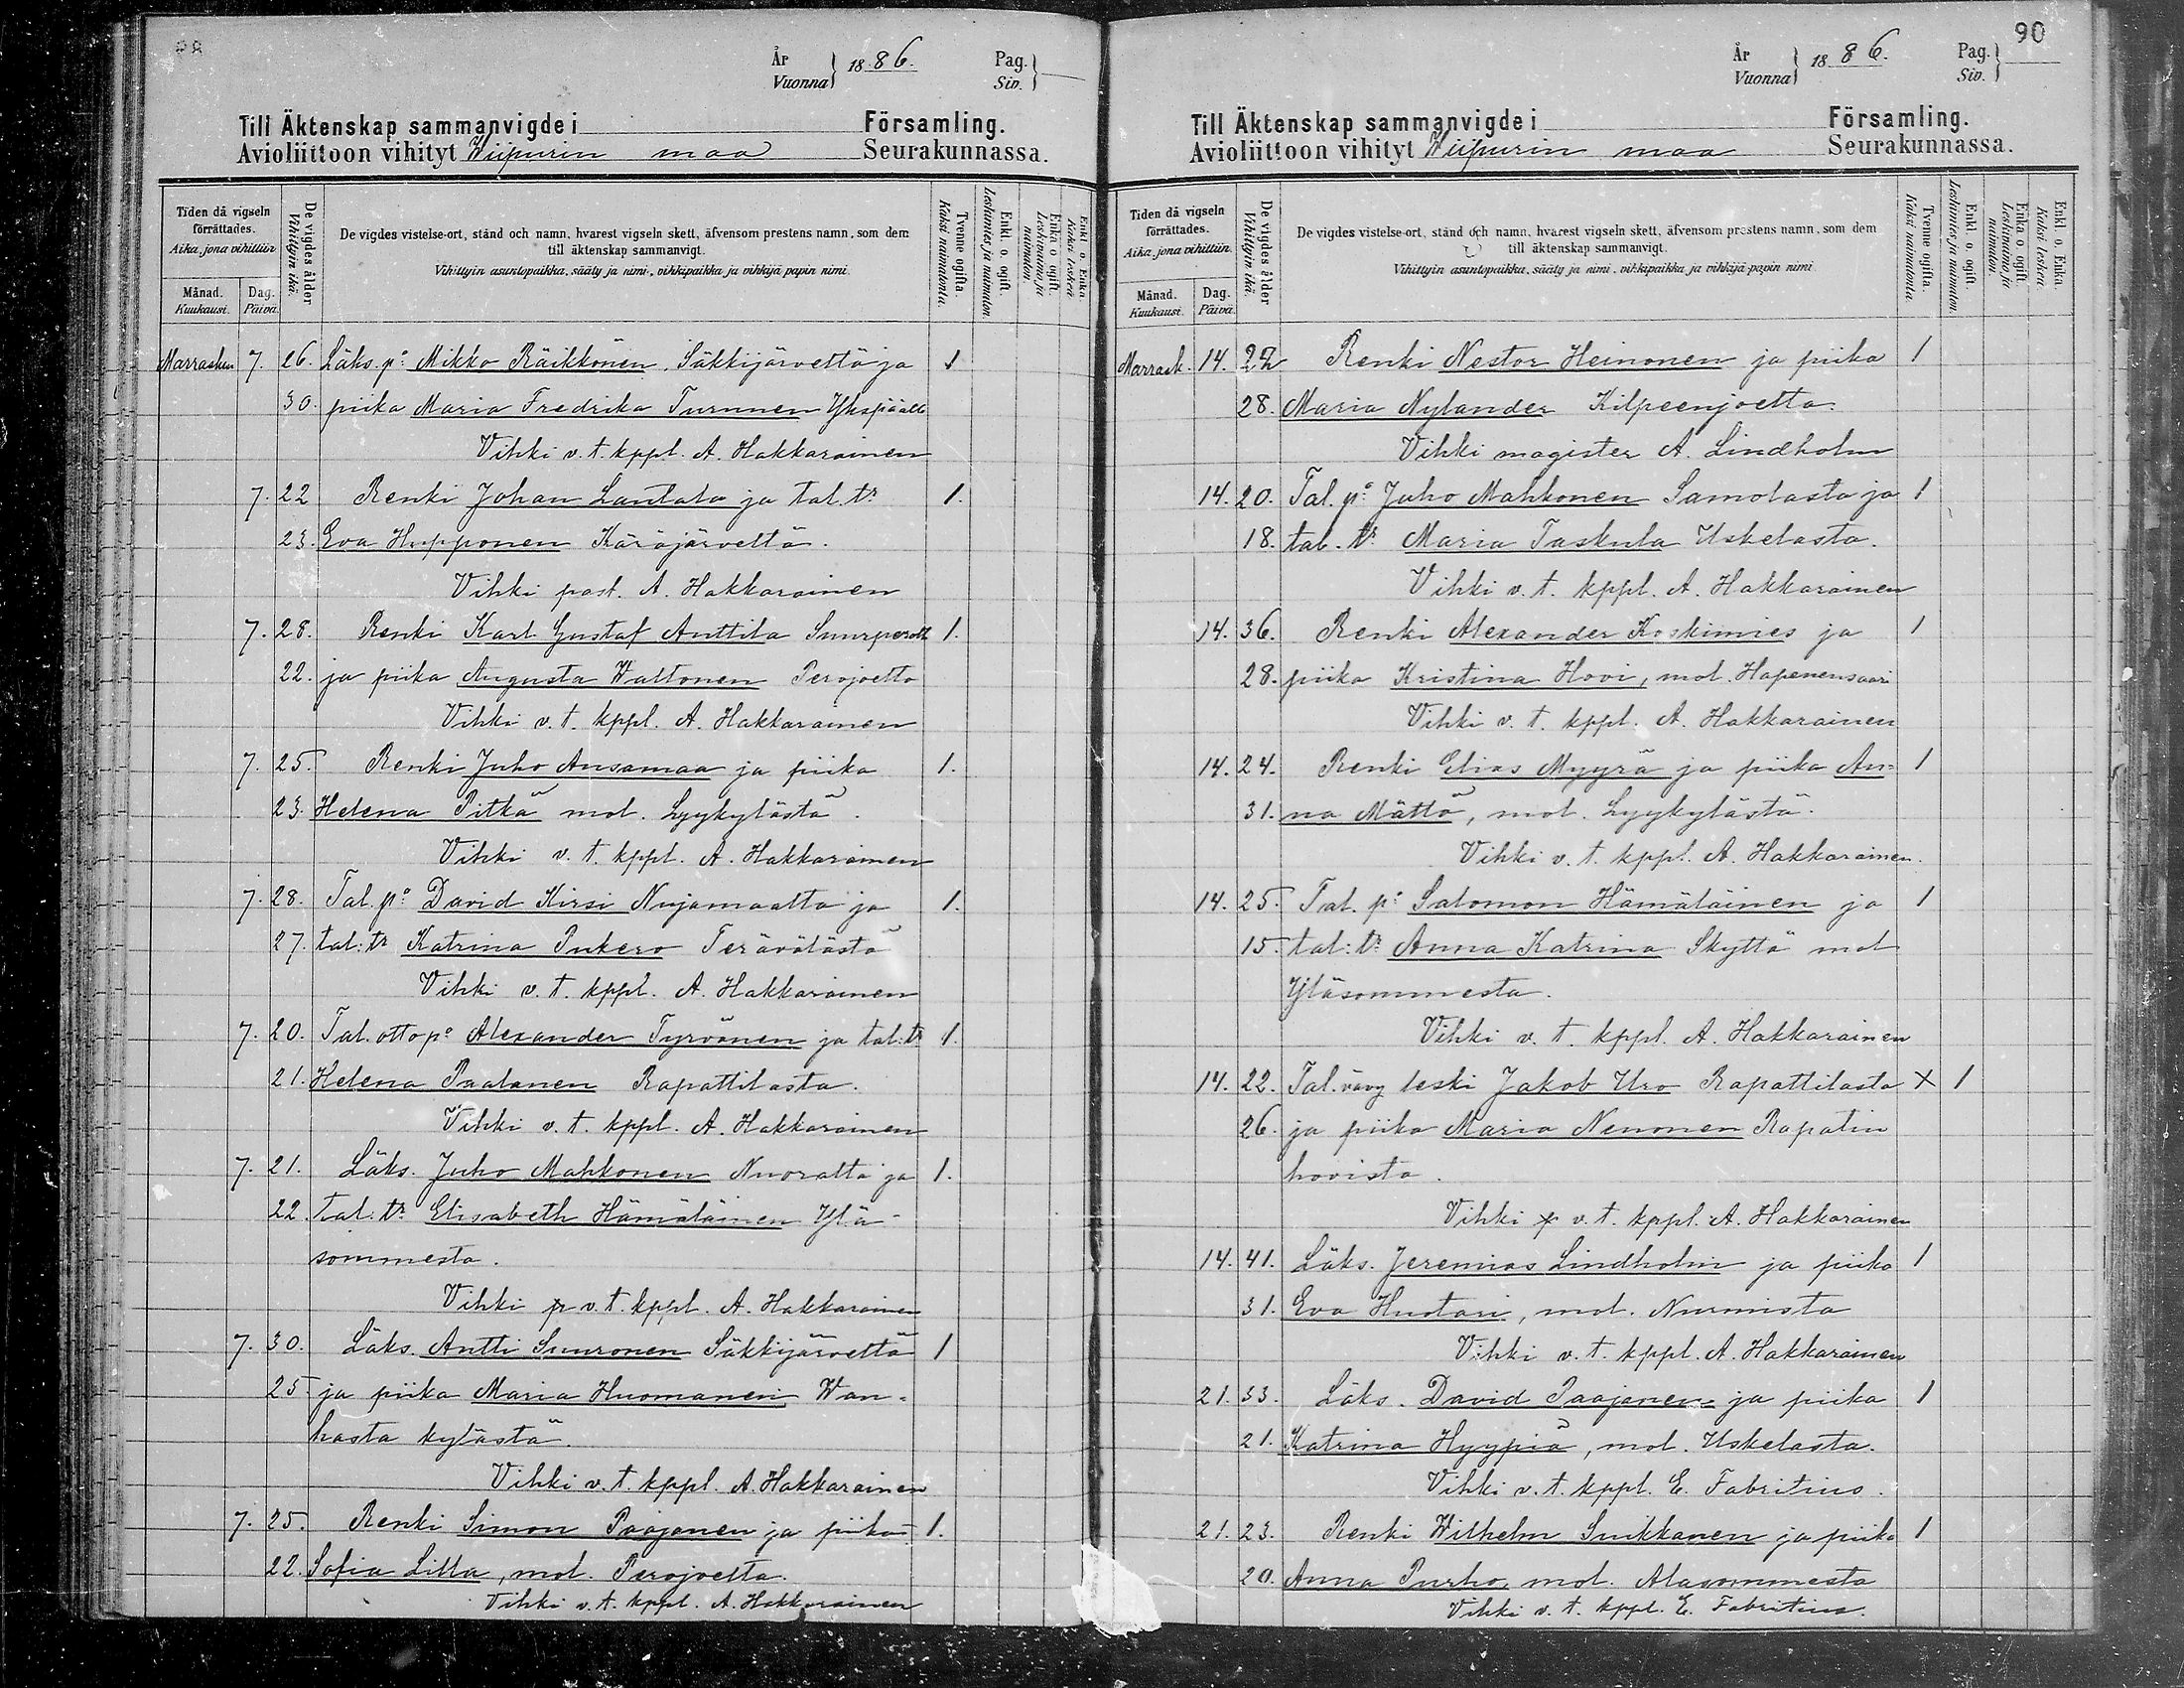 År
Vuonna } 1886.
Pag.
Siv. }
Till Äktenskap sammanvigde i Församling.
Avioliittoon vihityt Wiipurin maa Seurakunnassa.
Tiden då vigseln förrättades.
Aika, jona vihittiin
Månad.
Kuukausi.
Dag.
Päivä.
De vigdes ålder
Vihittyin ikä.
De vigdes vistelse-ort, stånd och namn, hvarest vigseln skett, äfvensom prestens namn, som dem
till äktenskap sammanvigt.
Vihittyin asuntopaikka, sääty ja nimi, vihkipaikka ja vihkijä papin nimi.
Tvenne ogifta.
Kaksi naimatonta.
Enkl. o. ogift.
Leskimies ja naimaton.
Enka o. ogift.
Leskivaimo ja naimaton.
Enkl. o. Enka
Kaksi leskeä
Marraskuu 7. 26. Läks. p:o Mikko Räikkönen, Säkkijärveltä ja 1
30. piika Maria Fredrika Turunen Ykspäält.
Vihki v. t. kppl. A. Hakkarainen
7. 22 Renki Johan Lantala ja tal. tr 1.
23. Eva Hupponen Käräjärveltä.
Vihki past. A. Hakkarainen
7. 28. Renki Karl Gustaf Anttila Suurperolt 1.
22. ja piika Augusta Wattonen Perojoelta
Vihki v. t. kppl. A. Hakkarainen
7. 25. Renki Juho Ansamaa ja piika 1.
23. Helena Pitkä mol. Lyykylästä.
Vihki v. t. kppl. A. Hakkarainen
7. 28. Tal. p:o David Kirsi Nujamaalta ja 1.
27. tal: tr Katrina Pukero Terävälästä
Vihki v. t. kppl. A. Hakkarainen
7. 20. Tal. otto p:o Alexander Tyrvänen ja tal: tr 1.
21. Helena Paalanen Rapattilasta.
Vihki v. t. kppl. A. Hakkarainen
7. 21. Läks. Juho Mahkonen Nuoralta ja 1.
22. tal: tr Elisabeth Hämäläinen Ylä-
sommesta.
Vihki v. t. kppl. A. Hakkarainen
7. 30. Läks. Antti Suuronen Säkkijärveltä 1
25 ja piika Maria Huomanen Wan-
hasta kylästä.
Vihki v. t. kppl. A. Hakkarainen
7. 25. Renki Simon Paajanen ja piika 1.
22. Sofia Lilla, mol. Perojoelta.
Vihki v. t. kppl. A. Hakkarainen
90
År
Vuonna } 1886.
Pag.
Siv. }
Till Äktenskap sammanvigde i Församling.
Avioliittoon vihityt Wiipurin maa Seurakunnassa.
Tiden då vigseln förrättades.
Aika, jona vihittiin.
Månad.
Kuukausi.
Dag.
Päivä.
De vigdes ålder
Vihittyin ikä.
De vigdes vistelse-ort, stånd och namn, hvarest vigseln skett, äfvensom prestens namn, som dem
till äktenskap sammanvigt.
Vihittyin asuntopaikka, sääty ja nimi, vihkipaikka ja vihkijä papin nimi
Tvenne ogifta.
Kaksi naimatonta.
Enkl. o. ogift.
Leskimies ja naimaton.
Enka o. ogift.
Leskivaimo ja naimaton.
Enkl. o. Enka.
Kaksi leskeä.
Marrask. 14. 22 Renki Nestor Heinonen ja piika 1
28. Maria Nylander Kilpeenjoelta.
Vihki magister A. Lindholm
14. 20. Tal. p:o Juho Mahkonen Samolasta ja 1
18. tal. tr Maria Taskula Uskelasta.
Vihki v. t. kppl. A. Hakkarainen
14. 36. Renki Alexander Koskimies ja 1
28. piika Kristina Hovi, mol. Hapenensaari
Vihki v. t. kppl. A. Hakkarainen
14. 24. Renki Elias Myyrä ja piika An- 1
31. na Mättö, mol. Lyykylästä.
Vihki v. t. kppl. A. Hakkarainen.
14. 25. Tal. p: Salomon Hämäläinen ja 1
15. tal: tr Anna Katrina Skyttä mol
Yläsommesta.
Vihki v. t. kppl. A. Hakkarainen
14. 22. Tal. vävy leski Jakob Uro Rapattilasta x 1
26. ja piika Maria Nenonen Rapatin
hovista.
Vihki v. t. kppl. A. Hakkarainen
14. 41. Läks. Jeremias Lindholm ja piika 1
31. Eva Huotari, mol. Nurmista
Vihki v. t. kppl. A. Hakkarainen
21. 33. Läks. David Paajanen ja piika 1
21. Katrina Hyypiä, mol. Uskelasta.
Vihki v. t. kppl. E. Fabritius.
21. 23. Renki Wilhelm Suikkanen ja piika 1
20. Anna Purho, mol. Alasommesta
Vihki v. t. kppl. E. Fabritius.